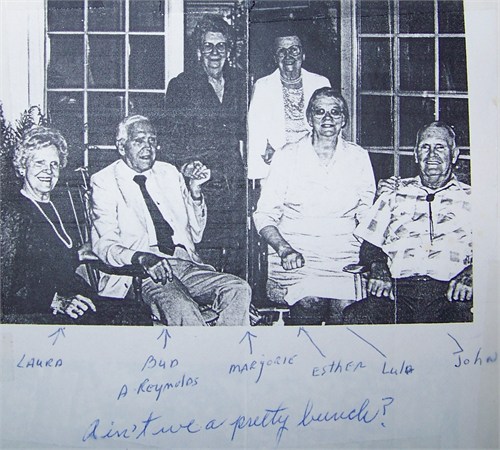 Laura
Bud
A. Reynolds
Marjorie
Esther
Lula
John
Ain't we a pretty bunch?